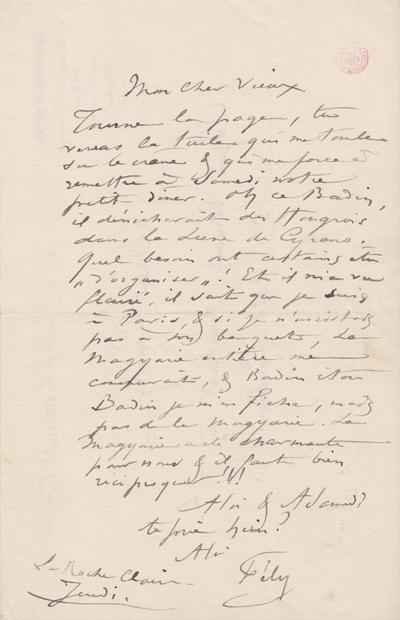 Mon cher Vieux
Tourne la page, tu
verras la tuile qui me tombe
sur le crane & qui me force à
remettre à Samedi notre
petit diner. Oh ce Badin,
il dénicherait des Hongrois
dans la Lune de Cyrano.
quel besoin ont certains
"d'organiser"! Et il m'a
flairé, il sait que je suis
à Paris, & si je n'assistais
pas à son banquet, La
Magyarie entière me
&
Badin je m'en fiche, mais
pas de la Magyarie. La
Magyarie a été charmante
pour nous & il faut bien
réciproquer!!!
A toi & A Samedi
hein?
A toi
Fély
La Roche Claire
Jeudi.